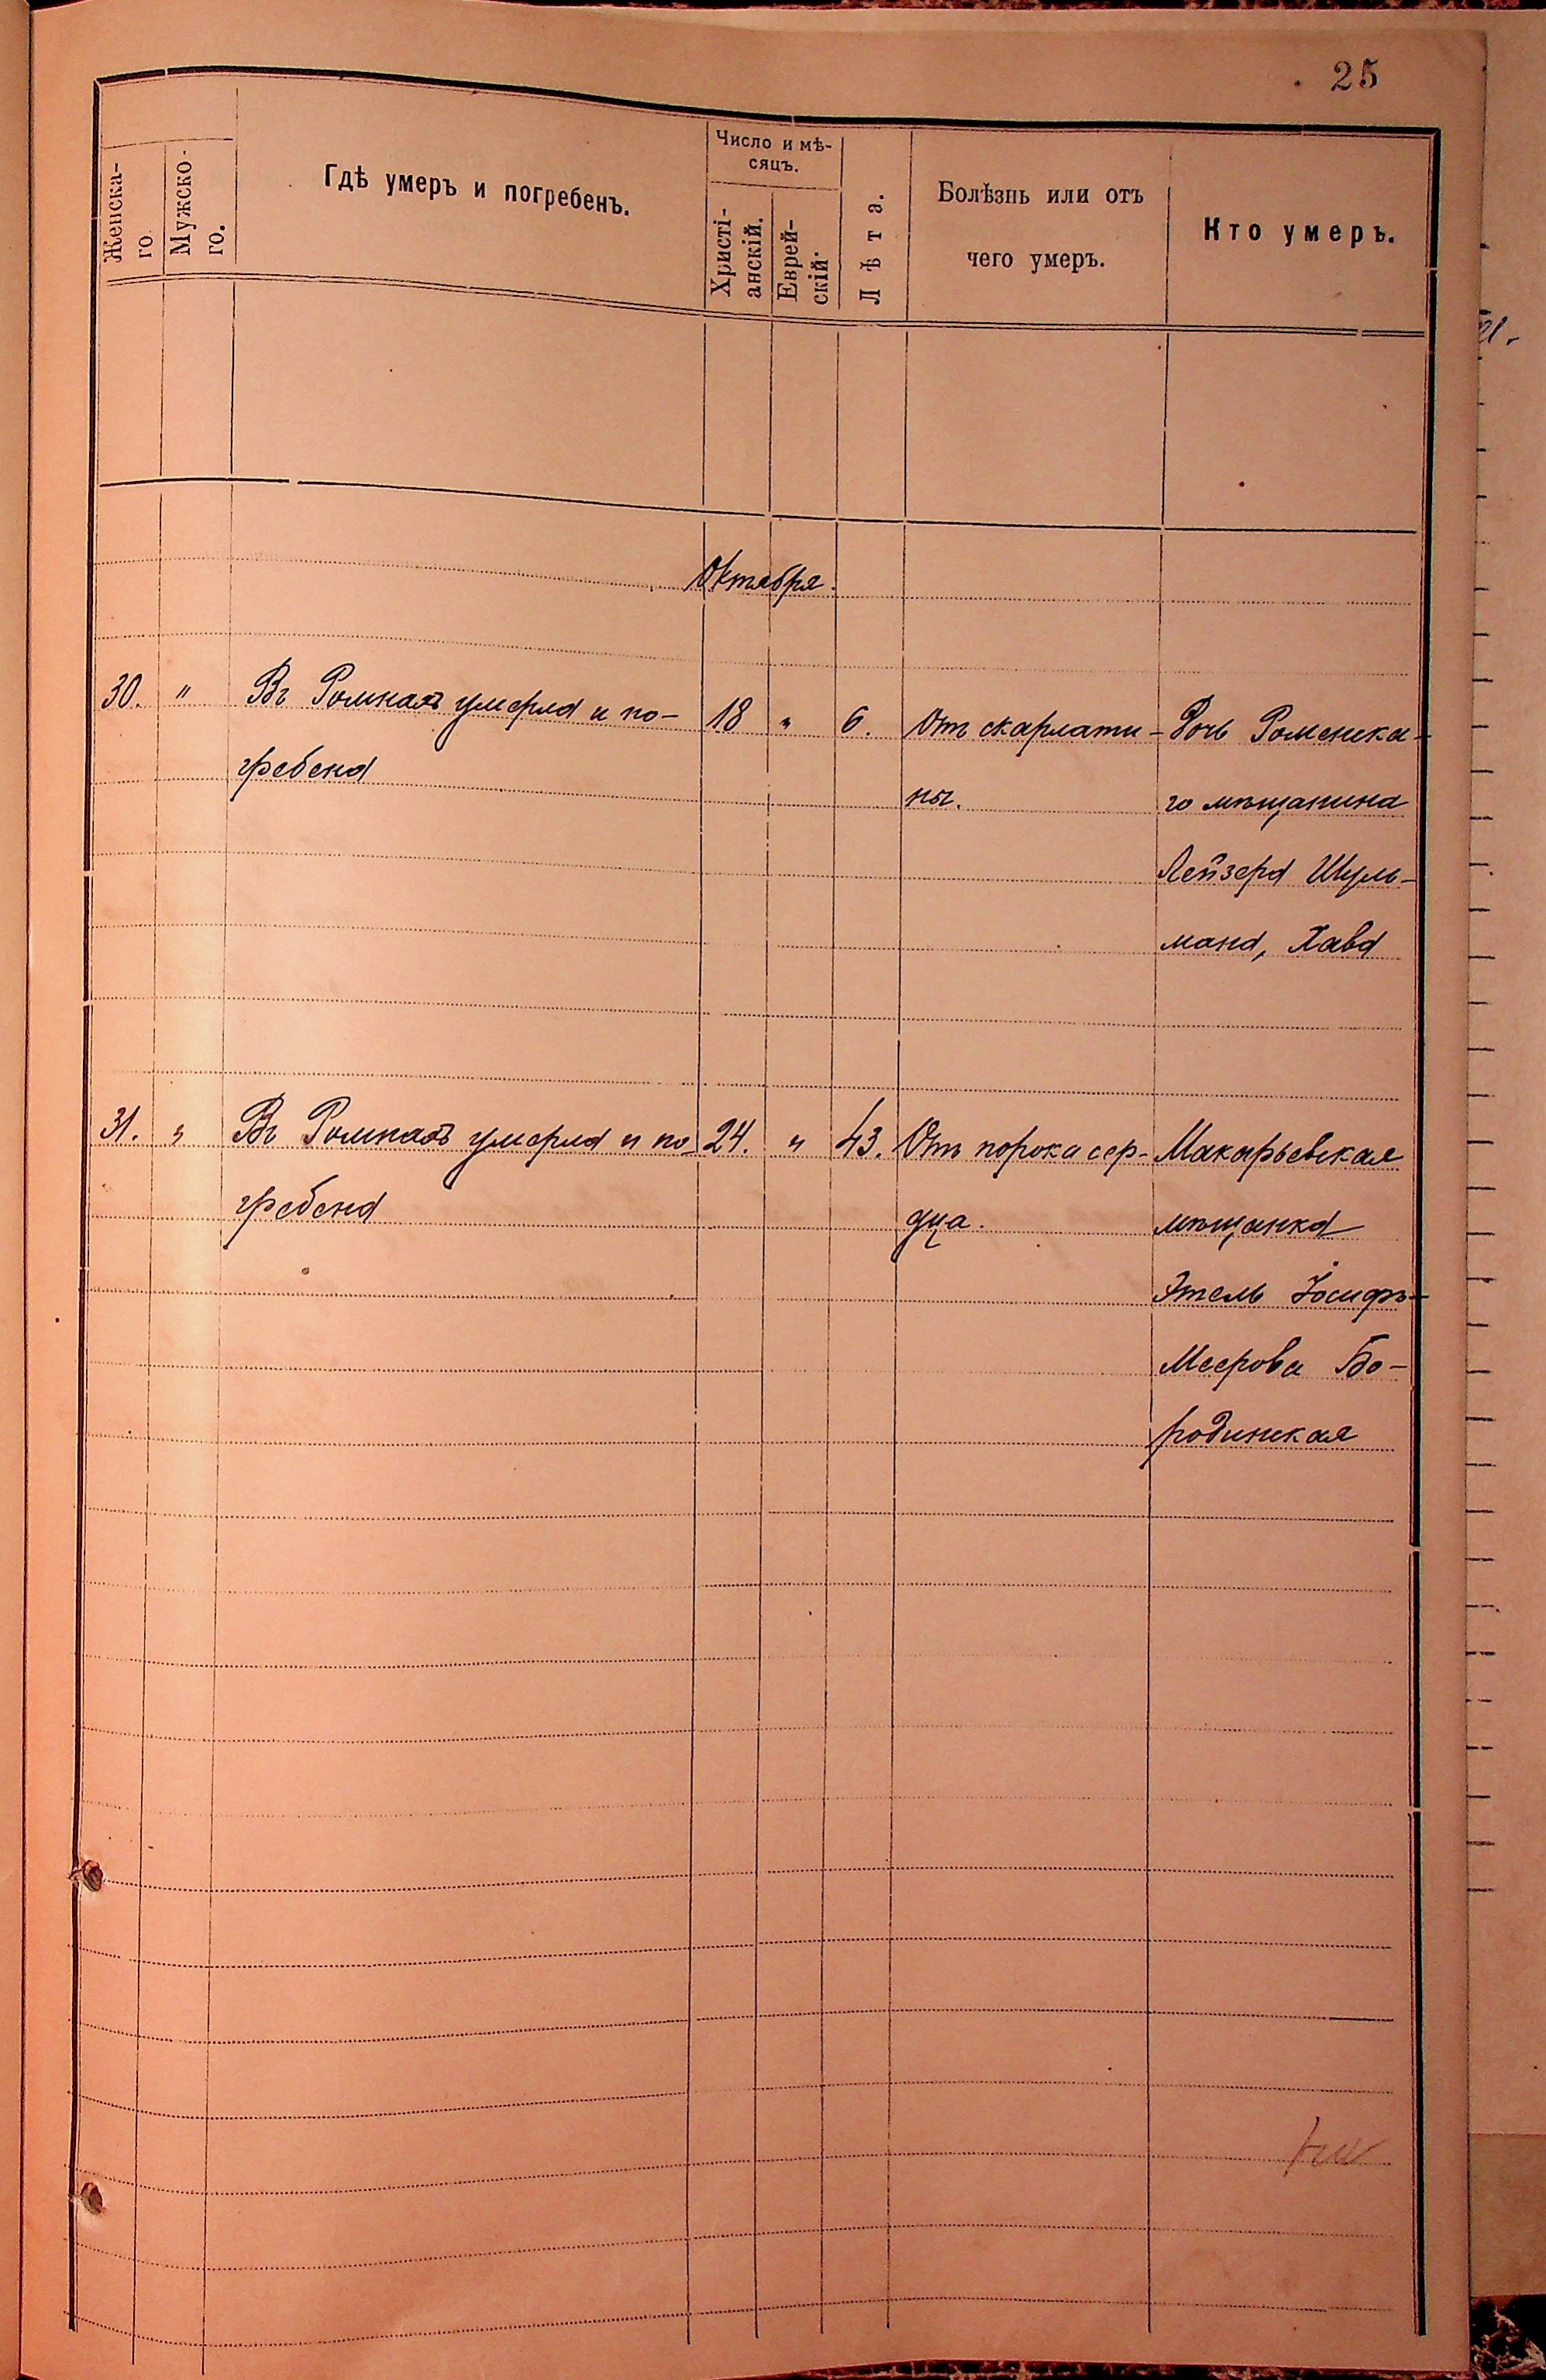 25
Женска-
го
Мужско-
го.
Гдѣ умеръ и погребенъ.
Число и мѣ-
сяцъ.
Христі-
анскій.
Еврей-
скій.
Лѣта.
Болѣзнь или отъ
чего умеръ.
Кто умеръ.
Октября.
30. " Въ Ромнахъ умерла и по- 18 " 6. Отъ скарлати- Дочь Роменска-
гребена
ны. го мѣщанина
Лейзера Шуль-
мана, Хава
31. " Въ Ромнахъ умерла и по- 24. " 43. Отъ порока сер- Макарьевская
гребена
дца. мѣщанка
Этель Іосифъ-
Меерова Бо-
родинская